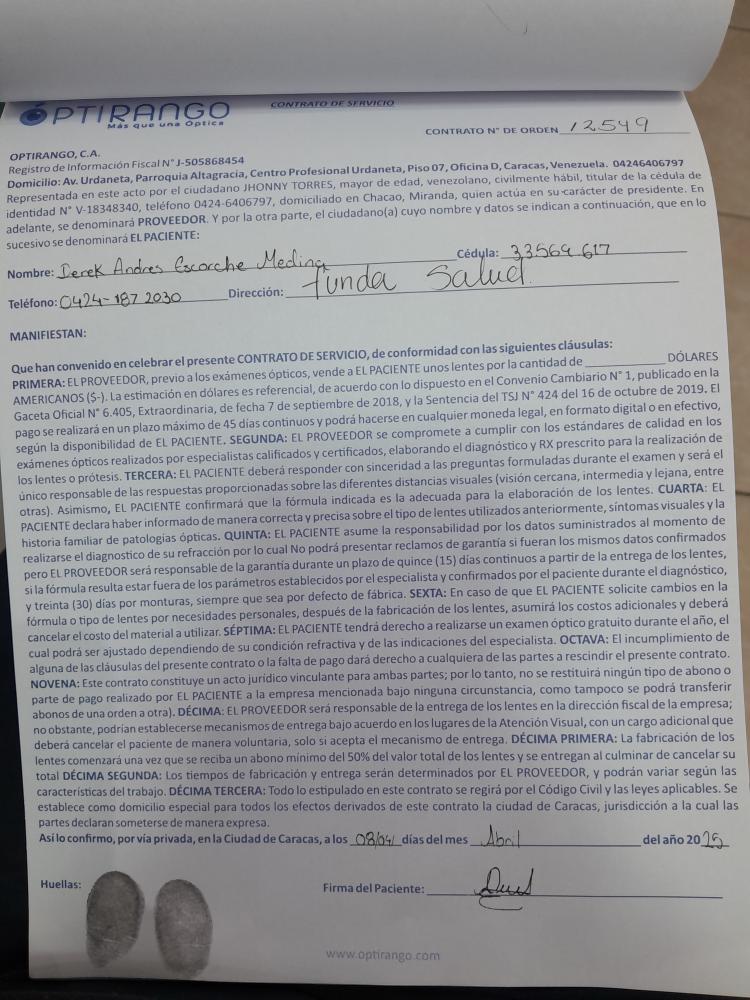 OPTIRANGO
Más que una Óptica
CONTRATO DE SERVICIO
CONTRATO N° DE ORDEN 12549
OPTIRANGO, C.A.
Registro de Información Fiscal N° J-505868454
Domicilio: Av. Urdaneta, Parroquia Altagracia, Centro Profesional Urdaneta, Piso 07, Oficina D, Caracas, Venezuela. 04246406797
Representada en este acto por el ciudadano JHONNY TORRES, mayor de edad, venezolano, civilmente hábil, titular de la cédula de
identidad N° V-18348340, teléfono 0424-6406797, domiciliado en Chacao, Miranda, quien actúa en su carácter de presidente. En
adelante, se denominará PROVEEDOR. Y por la otra parte, el ciudadano(a) cuyo nombre y datos se indican a continuación, que en lo
sucesivo se denominará EL PACIENTE:
Nombre: Derek Andres Escorche Medina Cédula: 33569.617
Teléfono: 0424-187 2030 Dirección: funda Salud
MANIFIESTAN:
Que han convenido en celebrar el presente CONTRATO DE SERVICIO, de conformidad con las siguientes cláusulas:
PRIMERA: EL PROVEEDOR, previo a los exámenes ópticos, vende a EL PACIENTE unos lentes por la cantidad de ____________ DÓLARES
AMERICANOS ($-). La estimación en dólares es referencial, de acuerdo con lo dispuesto en el Convenio Cambiario N° 1, publicado en la
Gaceta Oficial N° 6.405, Extraordinaria, de fecha 7 de septiembre de 2018, y la Sentencia del TSJ N° 424 del 16 de octubre de 2019. El
pago se realizará en un plazo máximo de 45 días continuos y podrá hacerse en cualquier moneda legal, en formato digital o en efectivo,
según la disponibilidad de EL PACIENTE. SEGUNDA: EL PROVEEDOR se compromete a cumplir con los estándares de calidad en los
exámenes ópticos realizados por especialistas calificados y certificados, elaborando el diagnóstico y RX prescrito para la realización de
los lentes o prótesis. TERCERA: EL PACIENTE deberá responder con sinceridad a las preguntas formuladas durante el examen y será el
único responsable de las respuestas proporcionadas sobre las diferentes distancias visuales (visión cercana, intermedia y lejana, entre
otras). Asimismo, EL PACIENTE confirmará que la fórmula indicada es la adecuada para la elaboración de los lentes. CUARTA: EL
PACIENTE declara haber informado de manera correcta y precisa sobre el tipo de lentes utilizados anteriormente, síntomas visuales y la
historia familiar de patologías ópticas. QUINTA: EL PACIENTE asume la responsabilidad por los datos suministrados al momento de
realizarse el diagnostico de su refracción por lo cual No podrá presentar reclamos de garantía si fueran los mismos datos confirmados
pero EL PROVEEDOR será responsable de la garantía durante un plazo de quince (15) días continuos a partir de la entrega de los lentes,
si la fórmula resulta estar fuera de los parámetros establecidos por el especialista y confirmados por el paciente durante el diagnóstico,
y treinta (30) días por monturas, siempre que sea por defecto de fábrica. SEXTA: En caso de que EL PACIENTE solicite cambios en la
fórmula o tipo de lentes por necesidades personales, después de la fabricación de los lentes, asumirá los costos adicionales y deberá
cancelar el costo del material a utilizar. SÉPTIMA: EL PACIENTE tendrá derecho a realizarse un examen óptico gratuito durante el año, el
cual podrá ser ajustado dependiendo de su condición refractiva y de las indicaciones del especialista. OCTAVA: El incumplimiento de
alguna de las cláusulas del presente contrato o la falta de pago dará derecho a cualquiera de las partes a rescindir el presente contrato.
NOVENA: Este contrato constituye un acto jurídico vinculante para ambas partes; por lo tanto, no se restituirá ningún tipo de abono o
parte de pago realizado por EL PACIENTE a la empresa mencionada bajo ninguna circunstancia, como tampoco se podrá transferir
abonos de una orden a otra). DÉCIMA: EL PROVEEDOR será responsable de la entrega de los lentes en la dirección fiscal de la empresa;
no obstante, podrían establecerse mecanismos de entrega bajo acuerdo en los lugares de la Atención Visual, con un cargo adicional que
deberá cancelar el paciente de manera voluntaria, solo si acepta el mecanismo de entrega. DÉCIMA PRIMERA: La fabricación de los
lentes comenzará una vez que se reciba un abono mínimo del 50% del valor total de los lentes y se entregan al culminar de cancelar su
total DÉCIMA SEGUNDA: Los tiempos de fabricación y entrega serán determinados por EL PROVEEDOR, y podrán variar según las
características del trabajo. DÉCIMA TERCERA: Todo lo estipulado en este contrato se regirá por el Código Civil y las leyes aplicables. Se
establece como domicilio especial para todos los efectos derivados de este contrato la ciudad de Caracas, jurisdicción a la cual las
partes declaran someterse de manera expresa.
Así lo confirmo, por vía privada, en la Ciudad de Caracas, a los 08/04/ días del mes Abril del año 2025
Huellas:
Firma del Paciente:
www.optirango.com